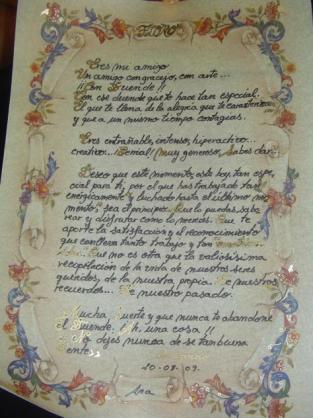 Eres mi amigo
Un amigo con gracejo, con arte...
¡¡Con Duende!!
Con ese duende que te hace tan especial.
El que te llena de la alegría que te caracteriza
y que a un mismo tiempo contagias.
Eres entrañable, intenso, hiperactivo...
creativo... ¡Genial! Muy generoso, sabes dar...
Deseo que este momento, este hoy, tan espe,
cial para ti, por el que has trabajado tan
enérgicamente y luchado hasta el último mo,
mento, sea el principio. Que lo puedas sabo
rear y disfrutar como lo mereces. Que te
aporte la satisfacción y el reconocimiento
que conlleva tanto trabajo y tan
Que no es otra que la valiosísima
recopilación de la vida de nuestros seres
queridos, de la nuestra propia. De nuestros
recuerdos... De nuestro pasado.
Mucha Suerte y que nunca te abandone
el Duende. Oh, una cosa!!
No dejes nunca de ser tan buena
gente
10-08-09.
Ana